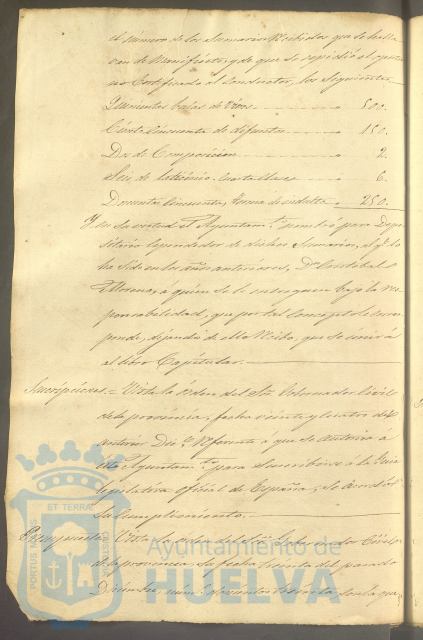 el número de los Sumarios Recibidos que se halla
ban de manifiesto, y de que se expidió el oportu
no Certificado al Conductor, los siguientes
Quinientas bulas de Vivos 500.
Ciento Cincuenta de difuntos 150.
Dos de Composicion 2.
Seis de lacticinio 6.
Doscientas Cincuenta, de indulto 250.
Y en su virtud el Ayuntam.to nombró para Depo
sitario Espendedor de dichos Sumarios, al q.e lo
ha sido en los años anteriores, D.n Cristóbal
Moreno, á quien se le entreguen bajo la res
ponsabilidad, que por tal Concepto le corres
ponde, dejando de ello Recibo, que se unirá
al libro Capitular.
Suscripciones = Vista la órden del Sr. Gobernador Civil
de la provincia, fecha veinte y cuatro del
anterior Dic.e Referente á que se autorice á
este Ayuntam.to para Suscribirse á la Guia
legislativa oficial de España; se acordó
su cumplimiento.
Vista la orden del Sr. Gobernador Civil
de la provincia, su fecha treinta del pasado
Diciembre, núm. por la que
PORTUS MARIS
ET TERRAE
CUSTODIA
Ayuntamiento de
HUELVA